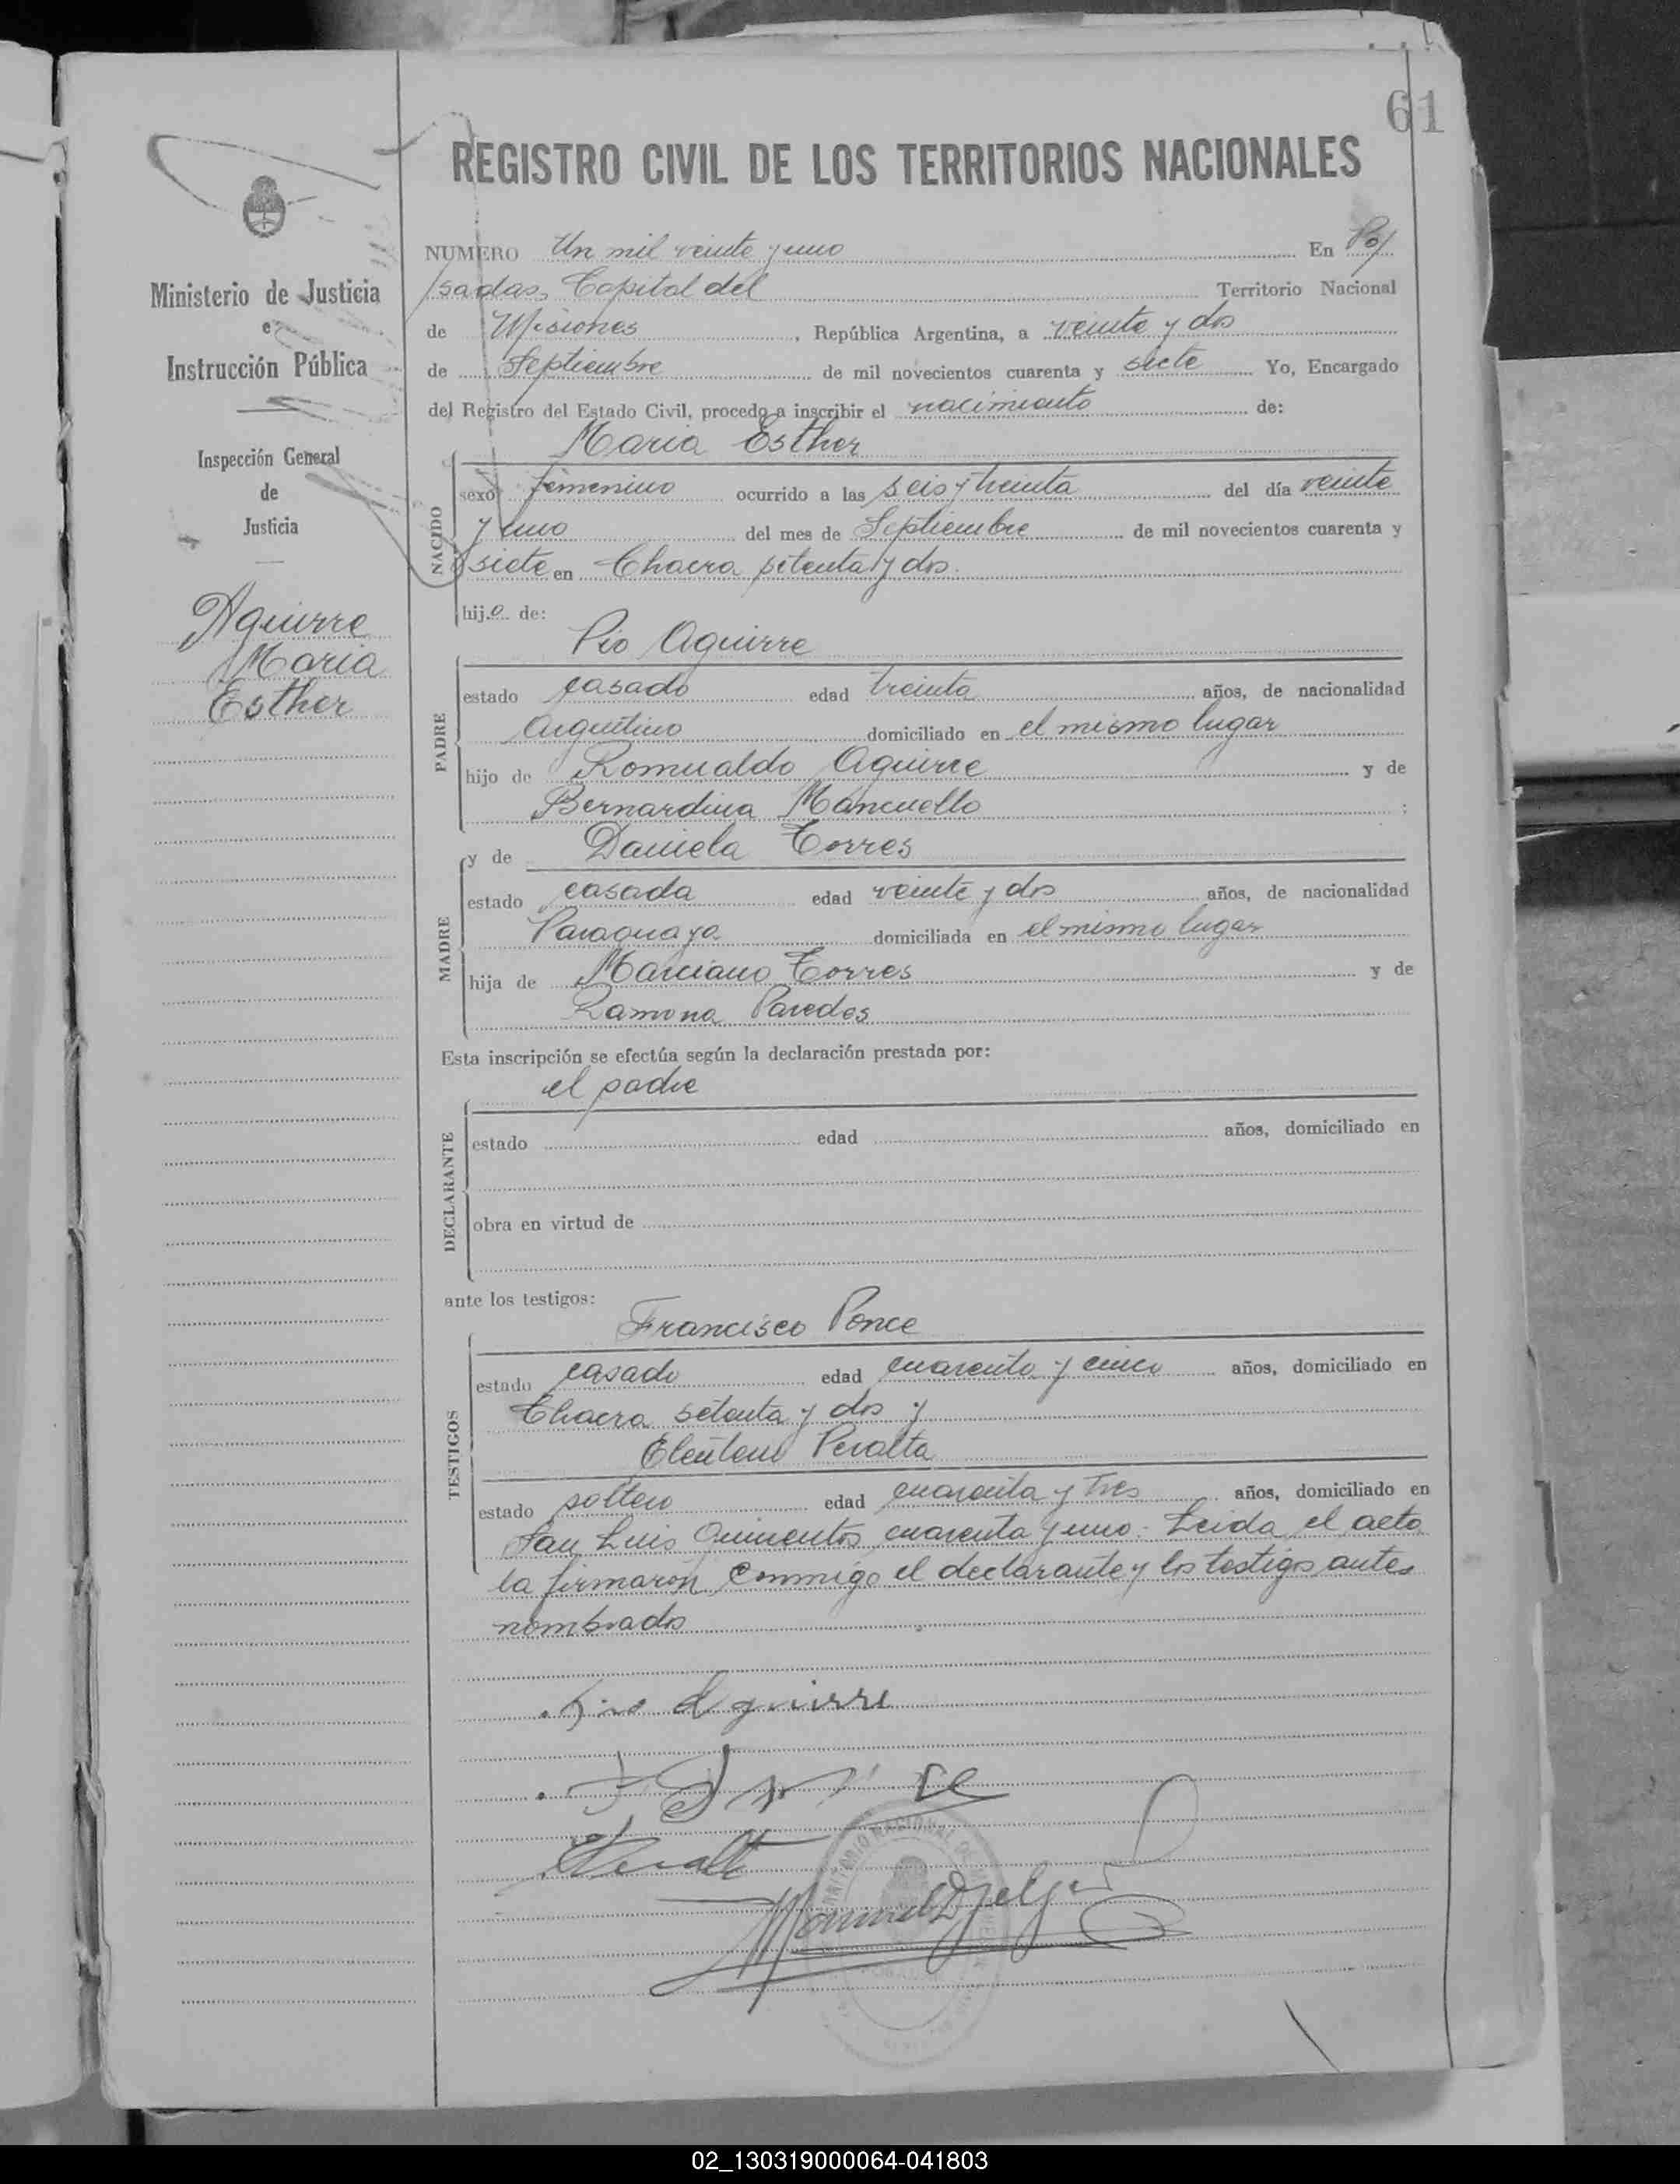 61
REGISTRO CIVIL DE LOS TERRITORIOS NACIONALES
Ministerio de Justicia
e
Instrucción Pública
Inspección General
de
Justicia
Aguirre
Maria
Esther
NUMERO Un mil veinte y uno En Po/
/sadas, Capital del Territorio Nacional
de Misiones, República Argentina, a veinte y dos
de Septiembre de mil novecientos cuarenta y siete Yo, Encargado
del Registro del Estado Civil, procedo a inscribir el nacimiento de:
Maria Esther
NACIDO
sexo femenino ocurrido a las seis y treinta del día veinte
y uno del mes de Septiembre de mil novecientos cuarenta y
siete en Chacra setenta y dos.
hija de:
Pio Aguirre
PADRE
estado casado edad treinta años, de nacionalidad
Argentino domiciliado en el mismo lugar
hijo de Romualdo Aguirre y de
Bernardina Mancuello ;
y de Daniela Torres
MADRE
estado casada edad veinte y dos años, de nacionalidad
Paraguaya domiciliada en el mismo lugar
hija de Marciano Torres y de
Ramona Paredes
Esta inscripción se efectúa según la declaración prestada por:
el padre
DECLARANTE
estado edad años, domiciliado en
obra en virtud de
ante los testigos:
Francisco Ponce
TESTIGOS
estado casado edad cuarenta y cinco años, domiciliado en
Chacra setenta y dos y
Eleuterio Peralta
estado soltero edad cuarenta y tres años, domiciliado en
San Luis Quinientos cuarenta y uno. Leida el acta
la firmaron conmigo el declarante y los testigos antes
nombrados
Pio Aguirre
02_130319000064-041803